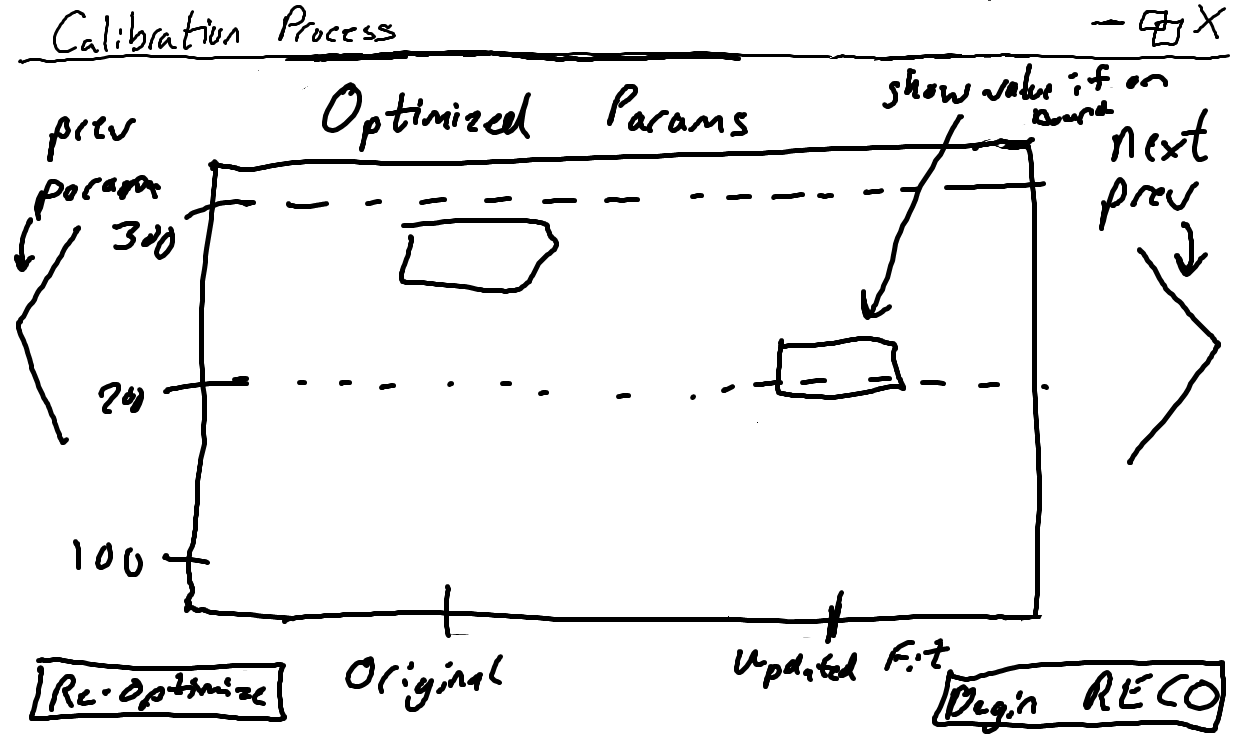 Calibration Process
X
Optimized Params
show value if on
bound
prev
param
next
prev
300
200
100
Original
Updated Fit
Re-Optimize
Begin RECO